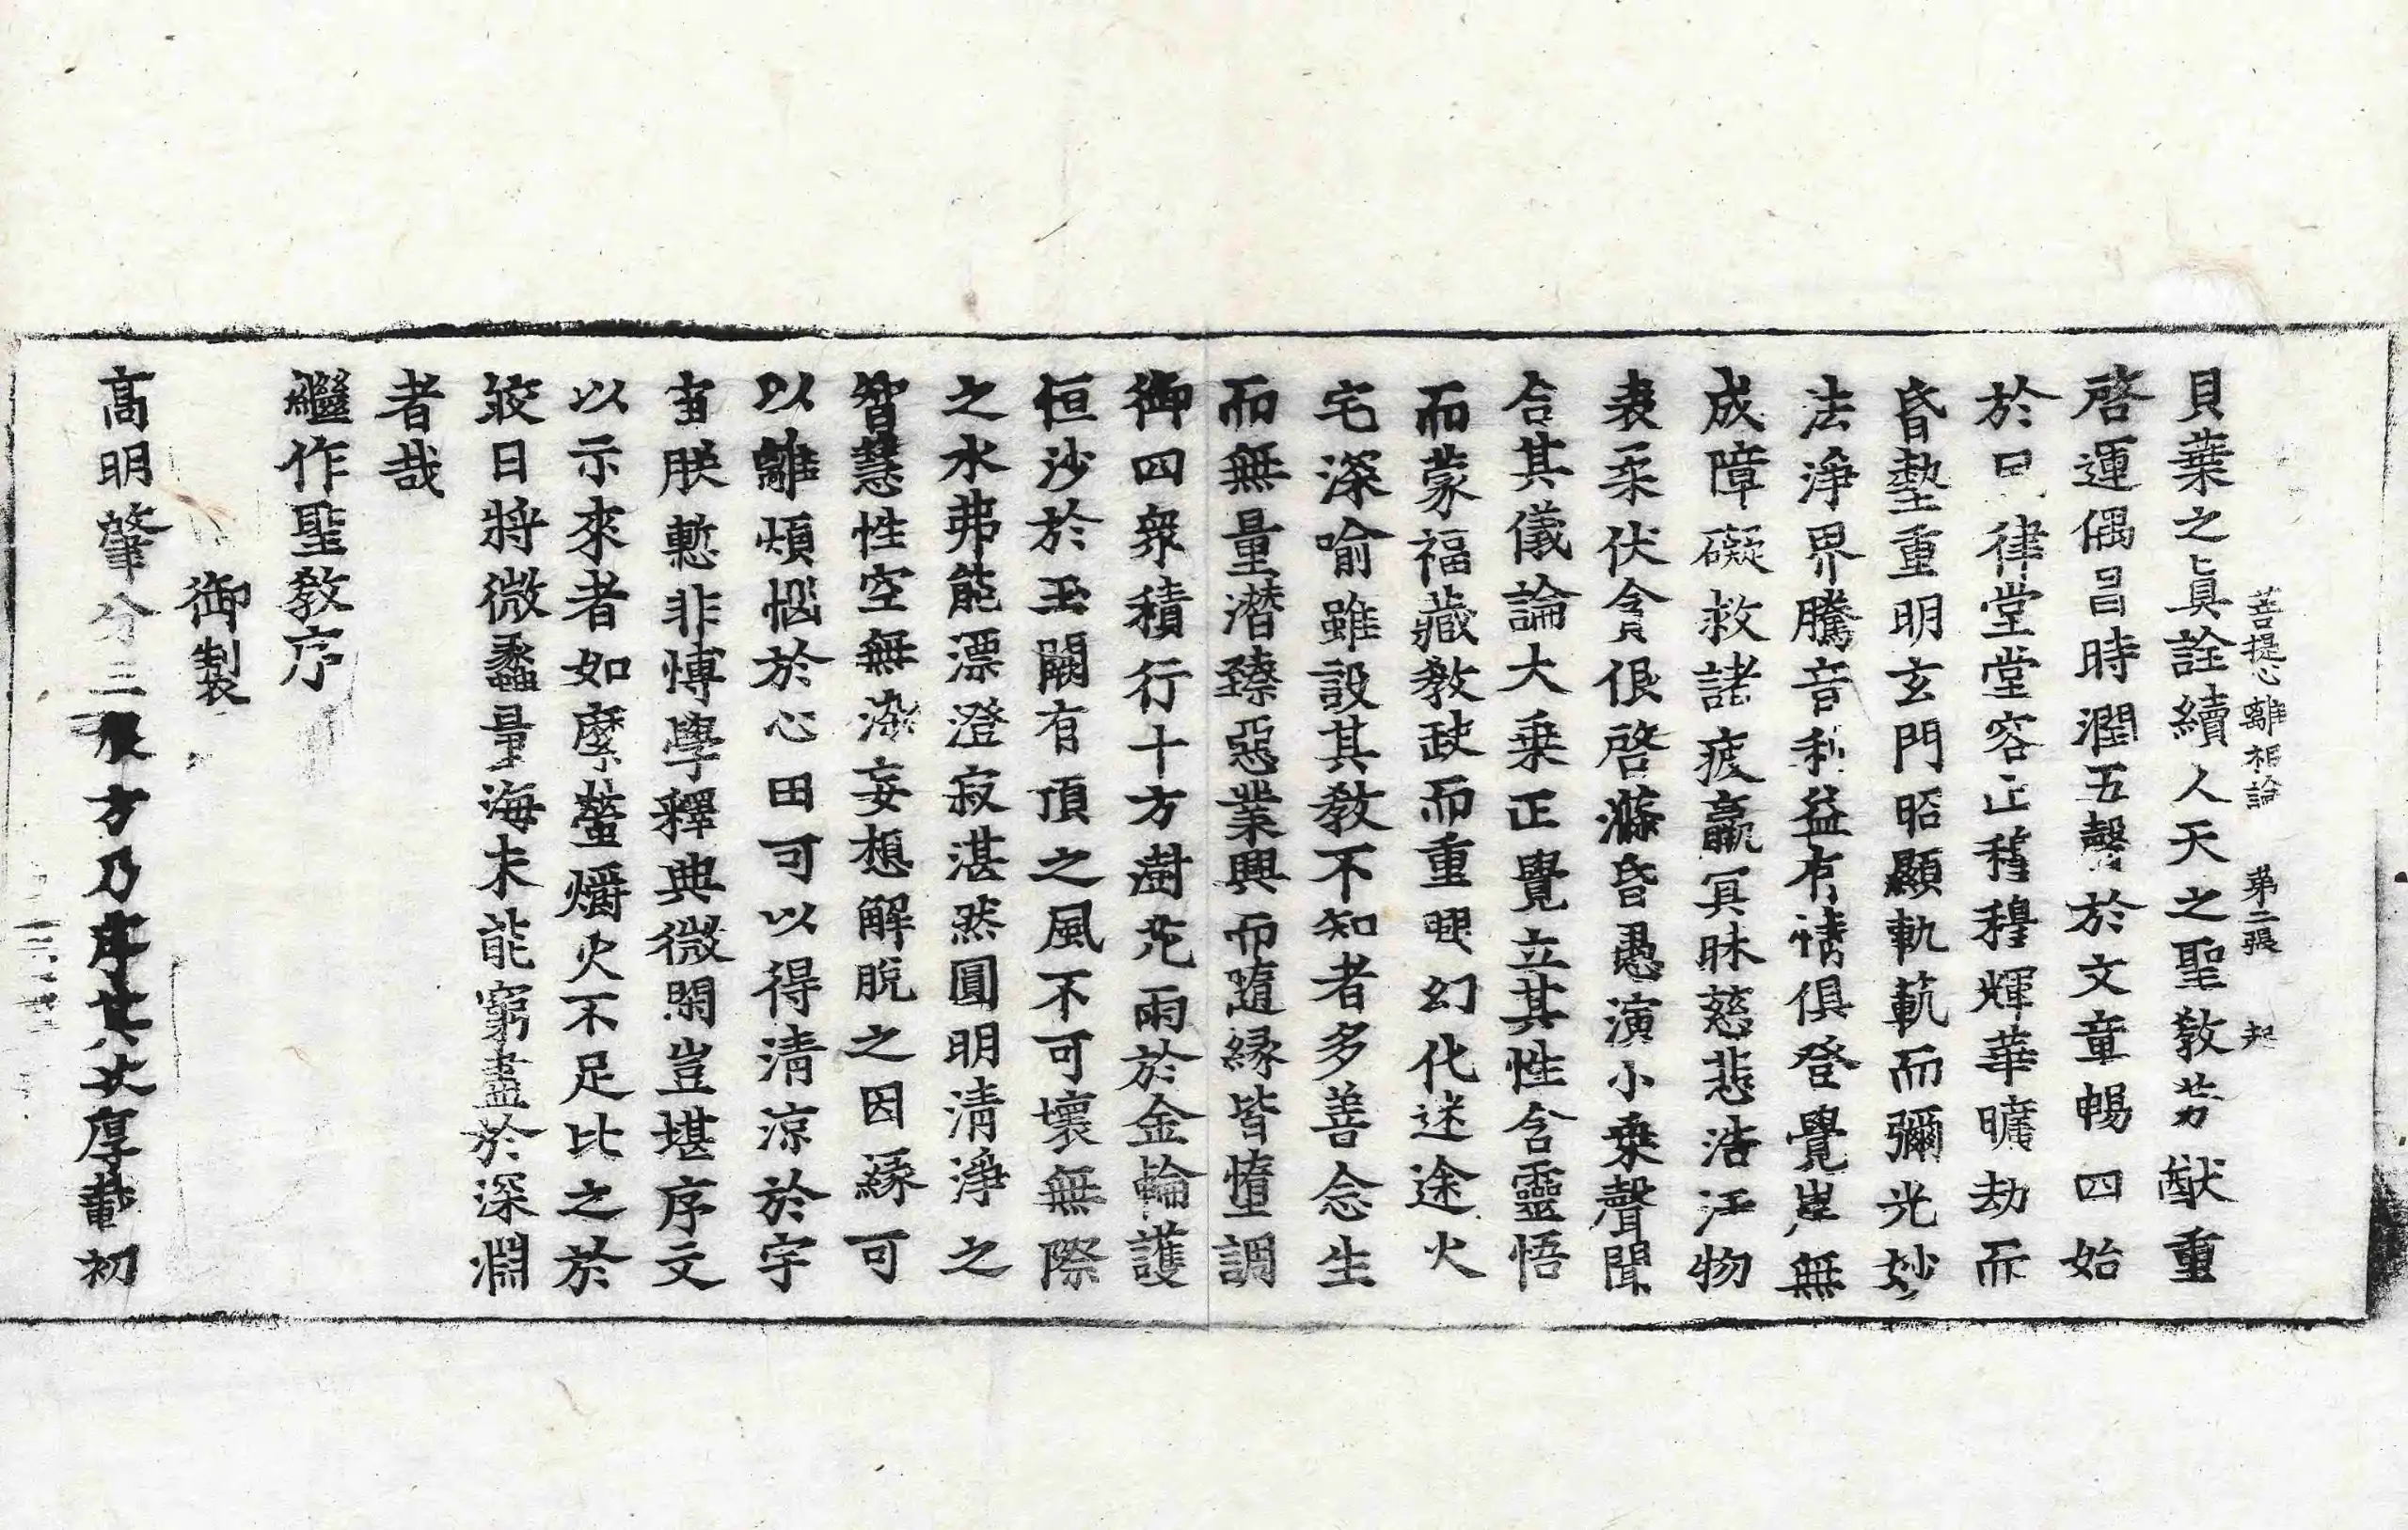 菩提心離相論 第二張 起
貝葉之真詮續人天之聖教芳猷重
啓運偶昌時潤五聲於文章暢四始
於口律堂堂容止穆穆輝華曠劫而
昏墊重明玄門昭顯軌範而彌光妙
法淨界騰音利益有情俱登覺岸無
成障礙救諸疲羸冥昧慈悲浩汗物
表柔伏貪佷啓滌昏愚演小乘聲聞
合其儀論大乘正覺立其性含靈悟
而蒙福藏教缺而重興幻化迷途火
宅深喻雖設其教不知者多善念生
而無量潛臻惡業興而隨緣皆墮調
御四衆積行十方澍花雨於金輪護
恒沙於玉闕有頂之風不可壞無際
之水弗能漂澄寂湛然圓明清淨之
智慧性空無染妄想解脫之因緣可
以離煩惱於心田可以得清涼於宇
宙朕慙非博學釋典微閑豈堪序文
以示來者如縻螢爝火不足比之於
皎日將微蠡量海未能窮盡於深淵
者哉
繼作聖教序
御製
高明肇分三辰方乃序其次厚載初